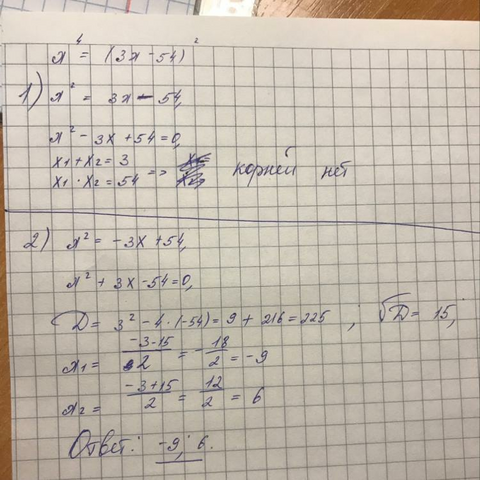 x⁴ = (3x - 54)²
1) x² = 3x - 54,
x² - 3x + 54 = 0,
x1 + x2 = 3
x1 · x2 = 54 => корней нет
2) x² = -3x + 54,
x² + 3x - 54 = 0,
D = 3² - 4 · (-54) = 9 + 216 = 225 ; √D = 15,;
x1 = (-3-15)/2 = -18/2 = -9
x2 = (-3+15)/2 = 12/2 = 6
Ответ: -9; 6.